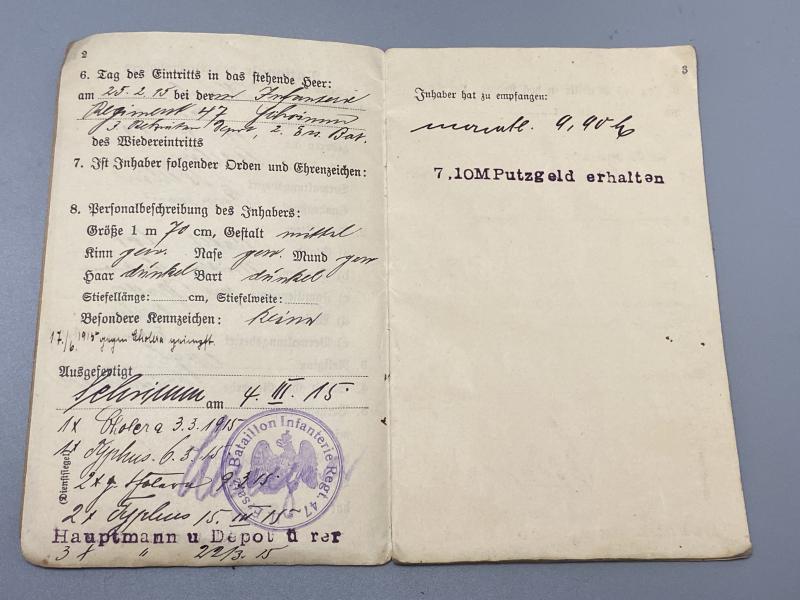 2
6. Tag des Eintritts in das stehende Heer:
am 25.2.15 bei dem Infanterie
Regiment 47 Schrimm
3. Rekruten Depot, 2. Ers. Bat.
des Wiedereintritts
7. Ist Inhaber folgender Orden und Ehrenzeichen:
8. Personalbeschreibung des Inhabers:
Größe 1 m 70 cm, Gestalt mittel
Kinn gew. Nase gew. Mund gew
Haar dunkel Bart dunkel
Stiefellänge: cm, Stiefelweite:
Besondere Kennzeichen: keine
17./6. 1915 gegen Cholera geimpft.
Ausgefertigt
Schrimm am 4. III. 15.
1x Cholera 3.3.1915
1x Typhus. 6.3.15.
2x g. Cholera 9.3.15.
2x Typhus 15. III 15
(Dienstsiegel)
Ersatz Bataillon Infanterie Regt. 47
Hauptmann u Depot ü rer
3x " 22/3. 15
3
Inhaber hat zu empfangen:
monatl. 9,90 M
7,10M Putzgeld erhalten